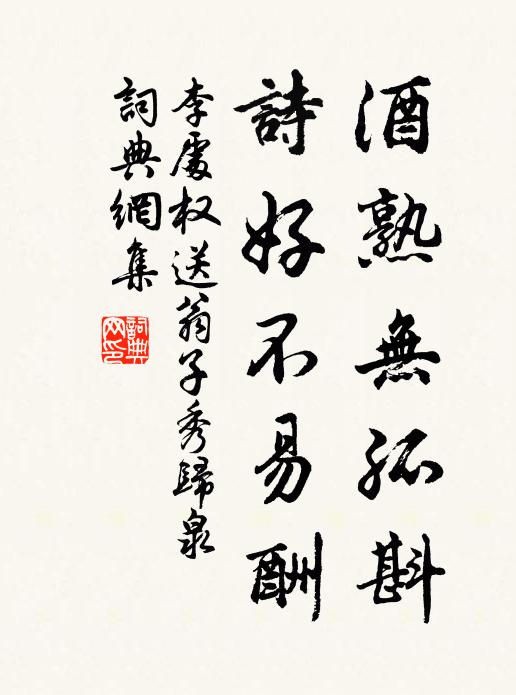 酒熟無孤斟
詩好不易酬
李處权送翁子秀歸泉
詞典網集
詞典网印